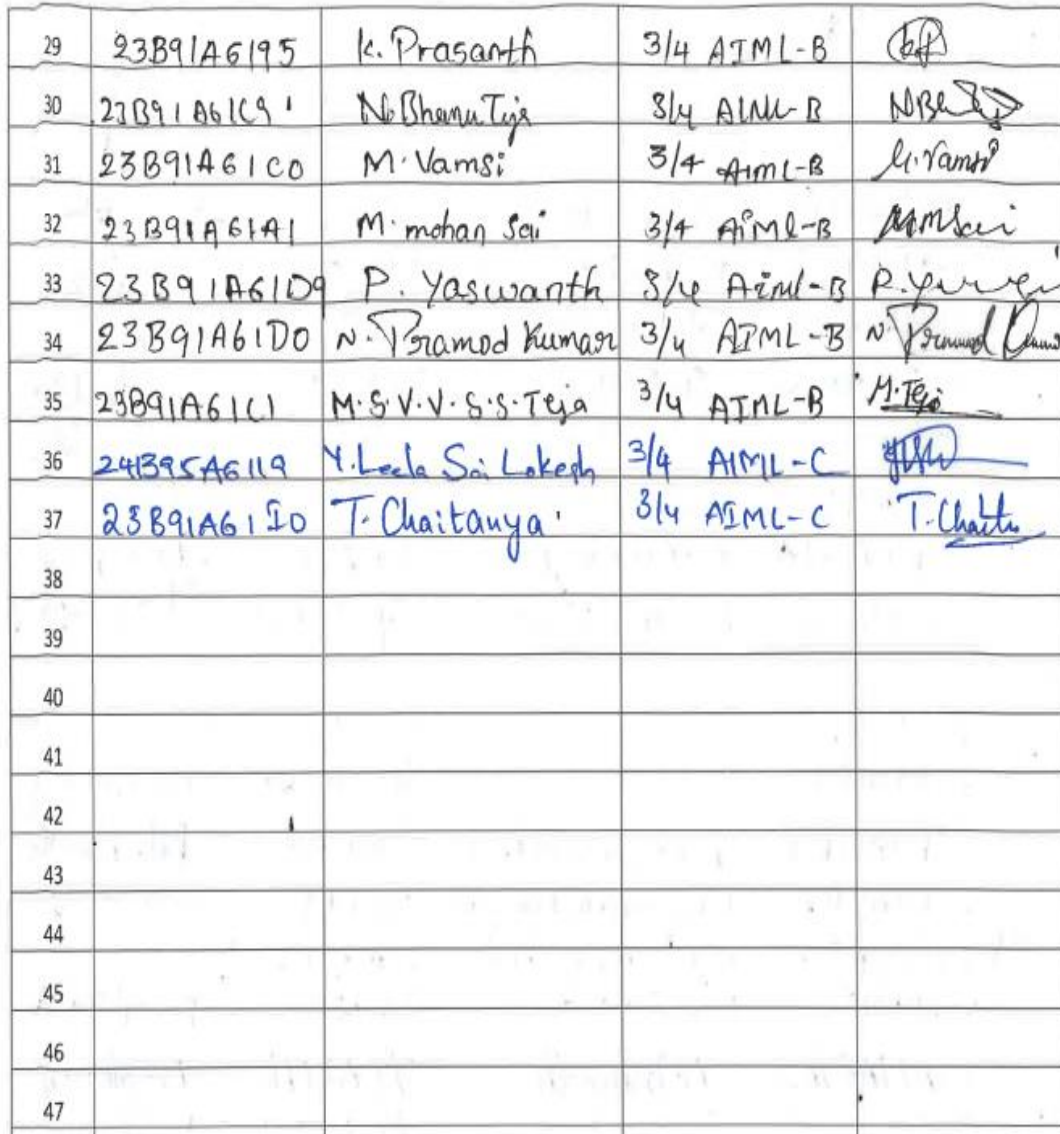 29 23B91A6195 K. Prasanth 3/4 AIML-B
30 23B91A61C9 N. Bhanu Teja 3/4 AIML-B
31 23B91A61C0 M. Vamsi 3/4 AIML-B M. Vamsi
32 23B91A61A1 M. mohan Sai 3/4 AiMl-B MMSai
33 23B91A61D9 P. Yaswanth 3/4 Aiml-B
34 23B91A61D0 N. Pramod Kumar 3/4 AIML-B N. Pramod Kumar
35 23B91A61C1 M.S.V.V.S.S.Teja 3/4 AIML-B M.Teja
36 24B95A6119 Y. Leela Sai Lokesh 3/4 AIML-C
37 23B91A61I0 T. Chaitanya 3/4 AIML-C T. Chaitu
38
39
40
41
42
43
44
45
46
47